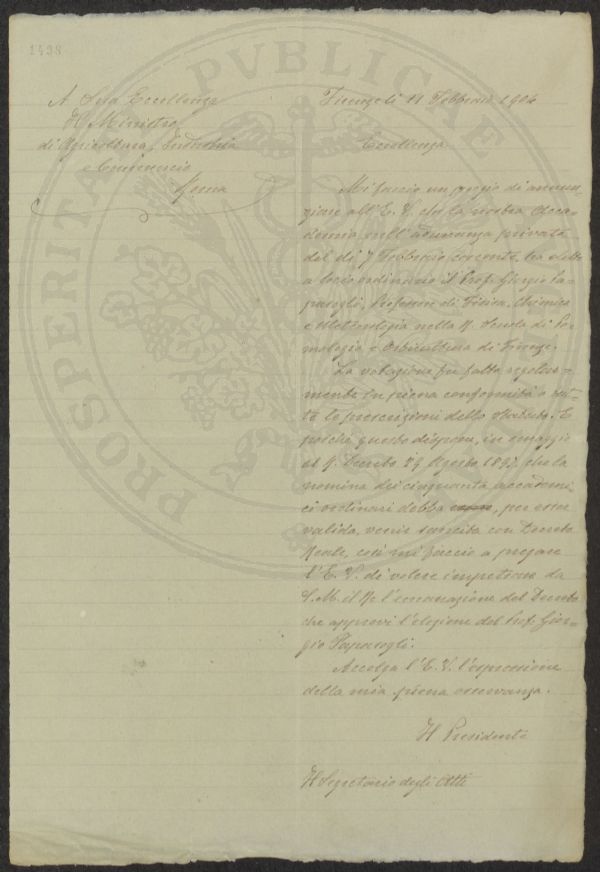 1498
PROSPERITATI PVBLICAE
A Sua Eccellenza
Il Ministro
di Agricoltura, Industria
e Commercio
Roma
Firenze li 11 Febbraio 1904
Eccellenza
Mi faccio un pregio di annun-
ziare all'E. V. che la nostra Acca-
demia nell'adunanza privata
del dì 7 Febbraio corrente, ha eletto
a socio ordinario il Prof. Giorgio Pa-
parogli, Professore di Fisica, Chimica
e Meteorologia nella R. Scuola di Po-
mologia e Orticultura di Firenze.
La votazione fu fatta regolar-
mente in piena conformità a tut-
te le prescrizioni dello Statuto. E
poichè questo dispone, in omaggio
al R. Decreto 29 Agosto 1897, che la
nomina dei cinquanta accademi-
ci ordinari debba, per esser
valida, venir sancita con Decreto
Reale, così mi faccio a pregare
l'E. V. di volere impetrare da
S. M. il Re l'emanazione del Decreto
che approvi l'elezione del Prof. Gior-
gio Paparogli.
Accolga l'E. V. l'espressione
della mia piena osservanza.
Il Presidente
Il Segretario degli Atti